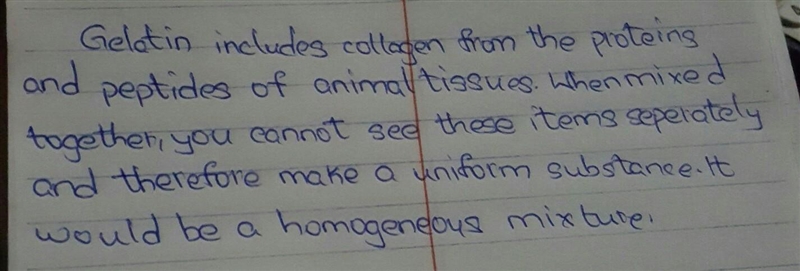 Gelatin includes collagen from the proteins
and peptides of animal tissues. When mixed
together, you cannot see these items seperately
and therefore make a uniform substance. It
would be a homogeneous mixture.